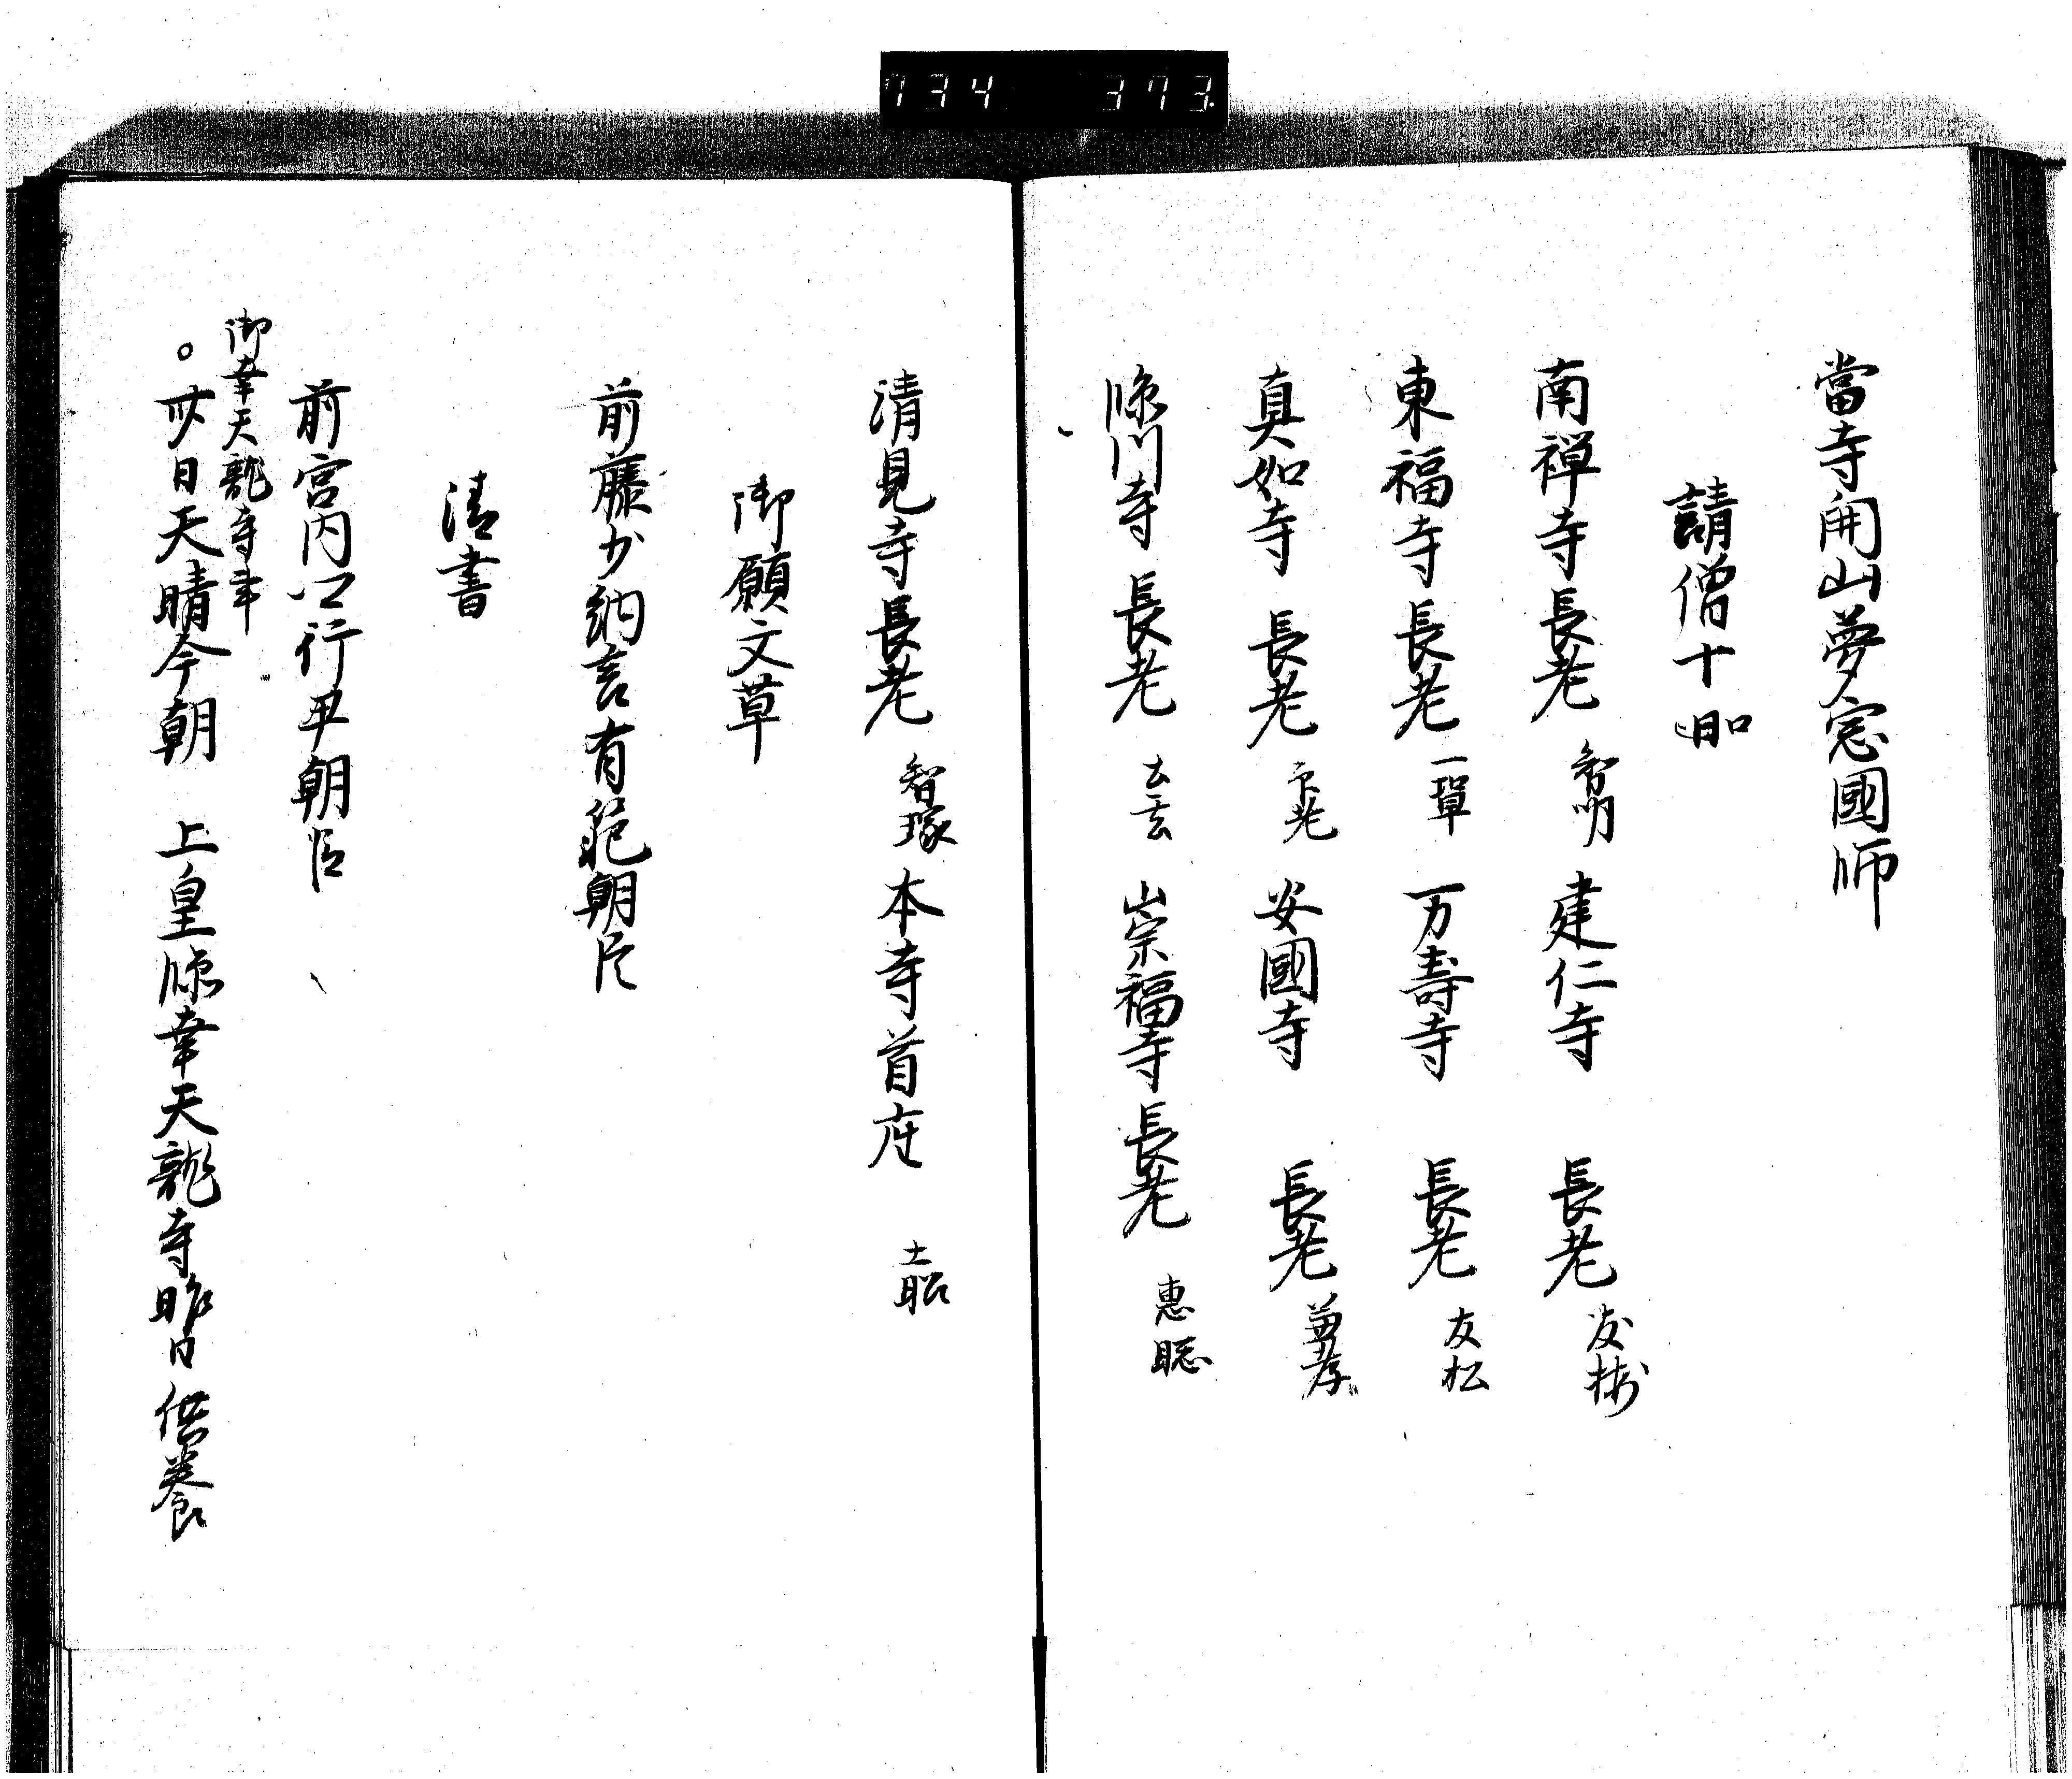 734 373
當寺開山夢窓國師
請僧十口
南禅寺長老 智明 建仁寺 長老 友梅
東福寺長老 一鞏 万壽寺 長老 友松
真如寺 長老 安國寺 長老
臨川寺 長老 玄 崇福寺長老 惠聡
清見寺長老 智璨 本寺首座 士昭
御願文草
前藤少納言有範朝臣
清書
前宮内卿行尹朝臣
御幸天龍寺事
。卅日天晴今朝 上皇臨幸天龍寺昨日供養